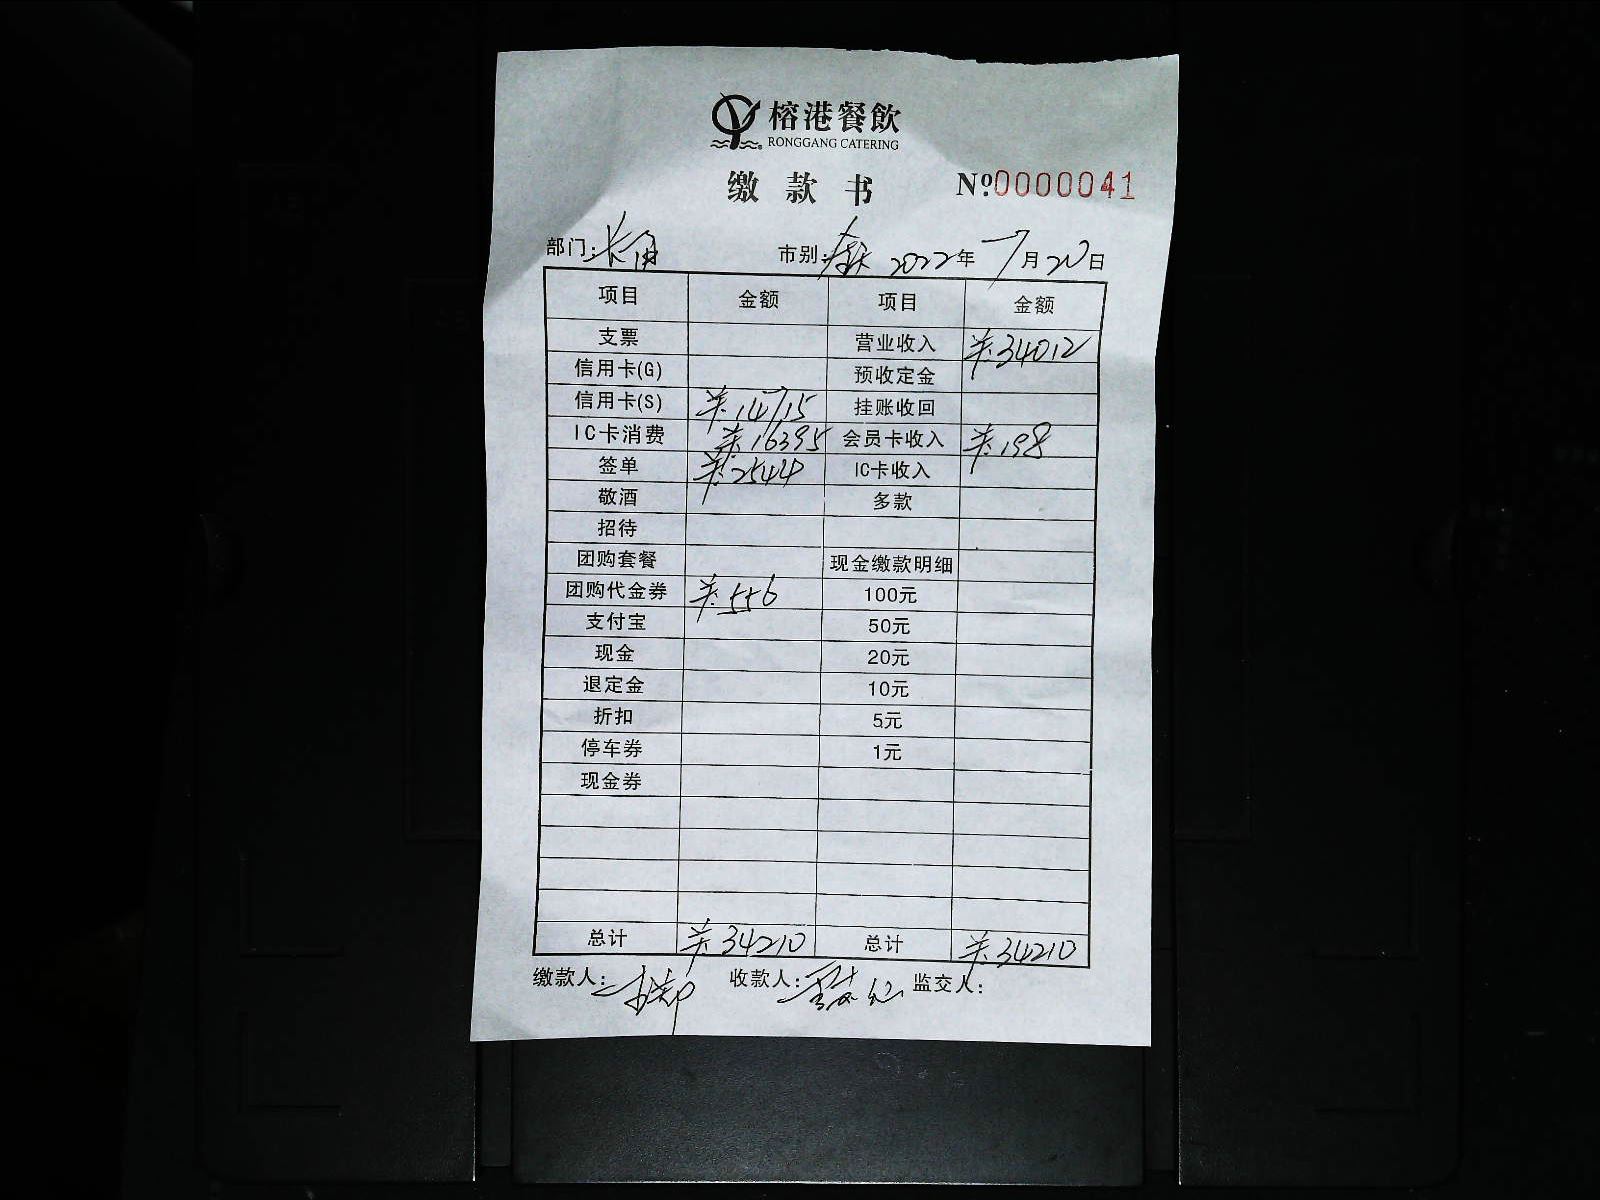 榕港餐飲
RONGGANG CATERING
缴款书 №0000041
部门: 市别: 2022年7月20日
项目 金额 项目 金额
支票 营业收入 羊:34012
信用卡(G) 预收定金
信用卡(S) 羊:14715 挂账收回
IC卡消费 羊:16395 会员卡收入 羊:198
签单 羊:2544 IC卡收入
敬酒 多款
招待
团购套餐 现金缴款明细
团购代金券 羊:556 100元
支付宝 50元
现金 20元
退定金 10元
折扣 5元
停车券 1元
现金券
总计 羊:34210 总计 羊:34210
缴款人: 收款人: 监交人: